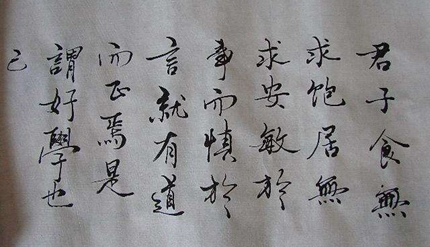 君子食無
求饱居無
求安敏於
事而慎於
言就有道
而正焉是
謂好學也
已